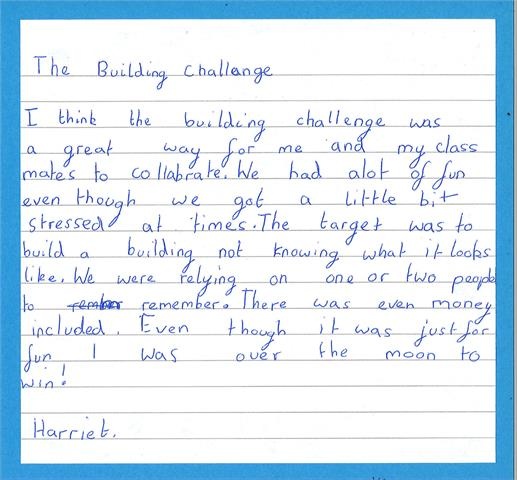 The Building Challange
I think the building challenge was
a great way for me and my class
mates to collabrate. We had alot of fun
even though we got a little bit
stressed at times. The target was to
build a building not knowing what it looks
like. We were relying on one or two people
to remember. There was even money
included. Even though it was just for
fun I was over the moon to
win!
Harriet.